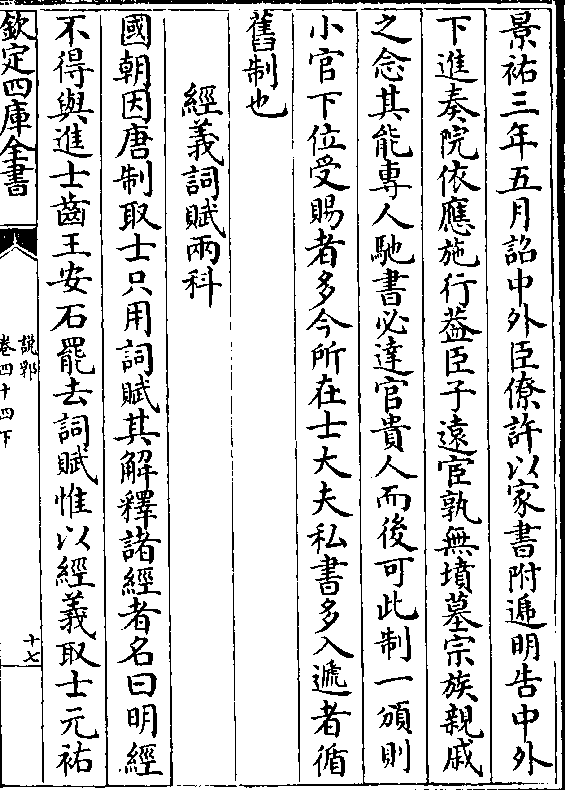 景祐三年五月詔中外臣僚許以家書附遞明告中外
下進奏院依應施行葢臣子遠宦孰無墳墓宗族親戚
之念其能專人馳書必達官貴人而後可此制一頒則
小官下位受賜者多今所在士大夫私書多入遞者循
舊制也
經義詞賦兩科
國朝因唐制取士只用詞賦其解釋諸經者名曰明經
不得與進士齒王安石罷去詞賦惟以經義取士元祐
欽定四庫全書
說郛
卷四十四下
十七